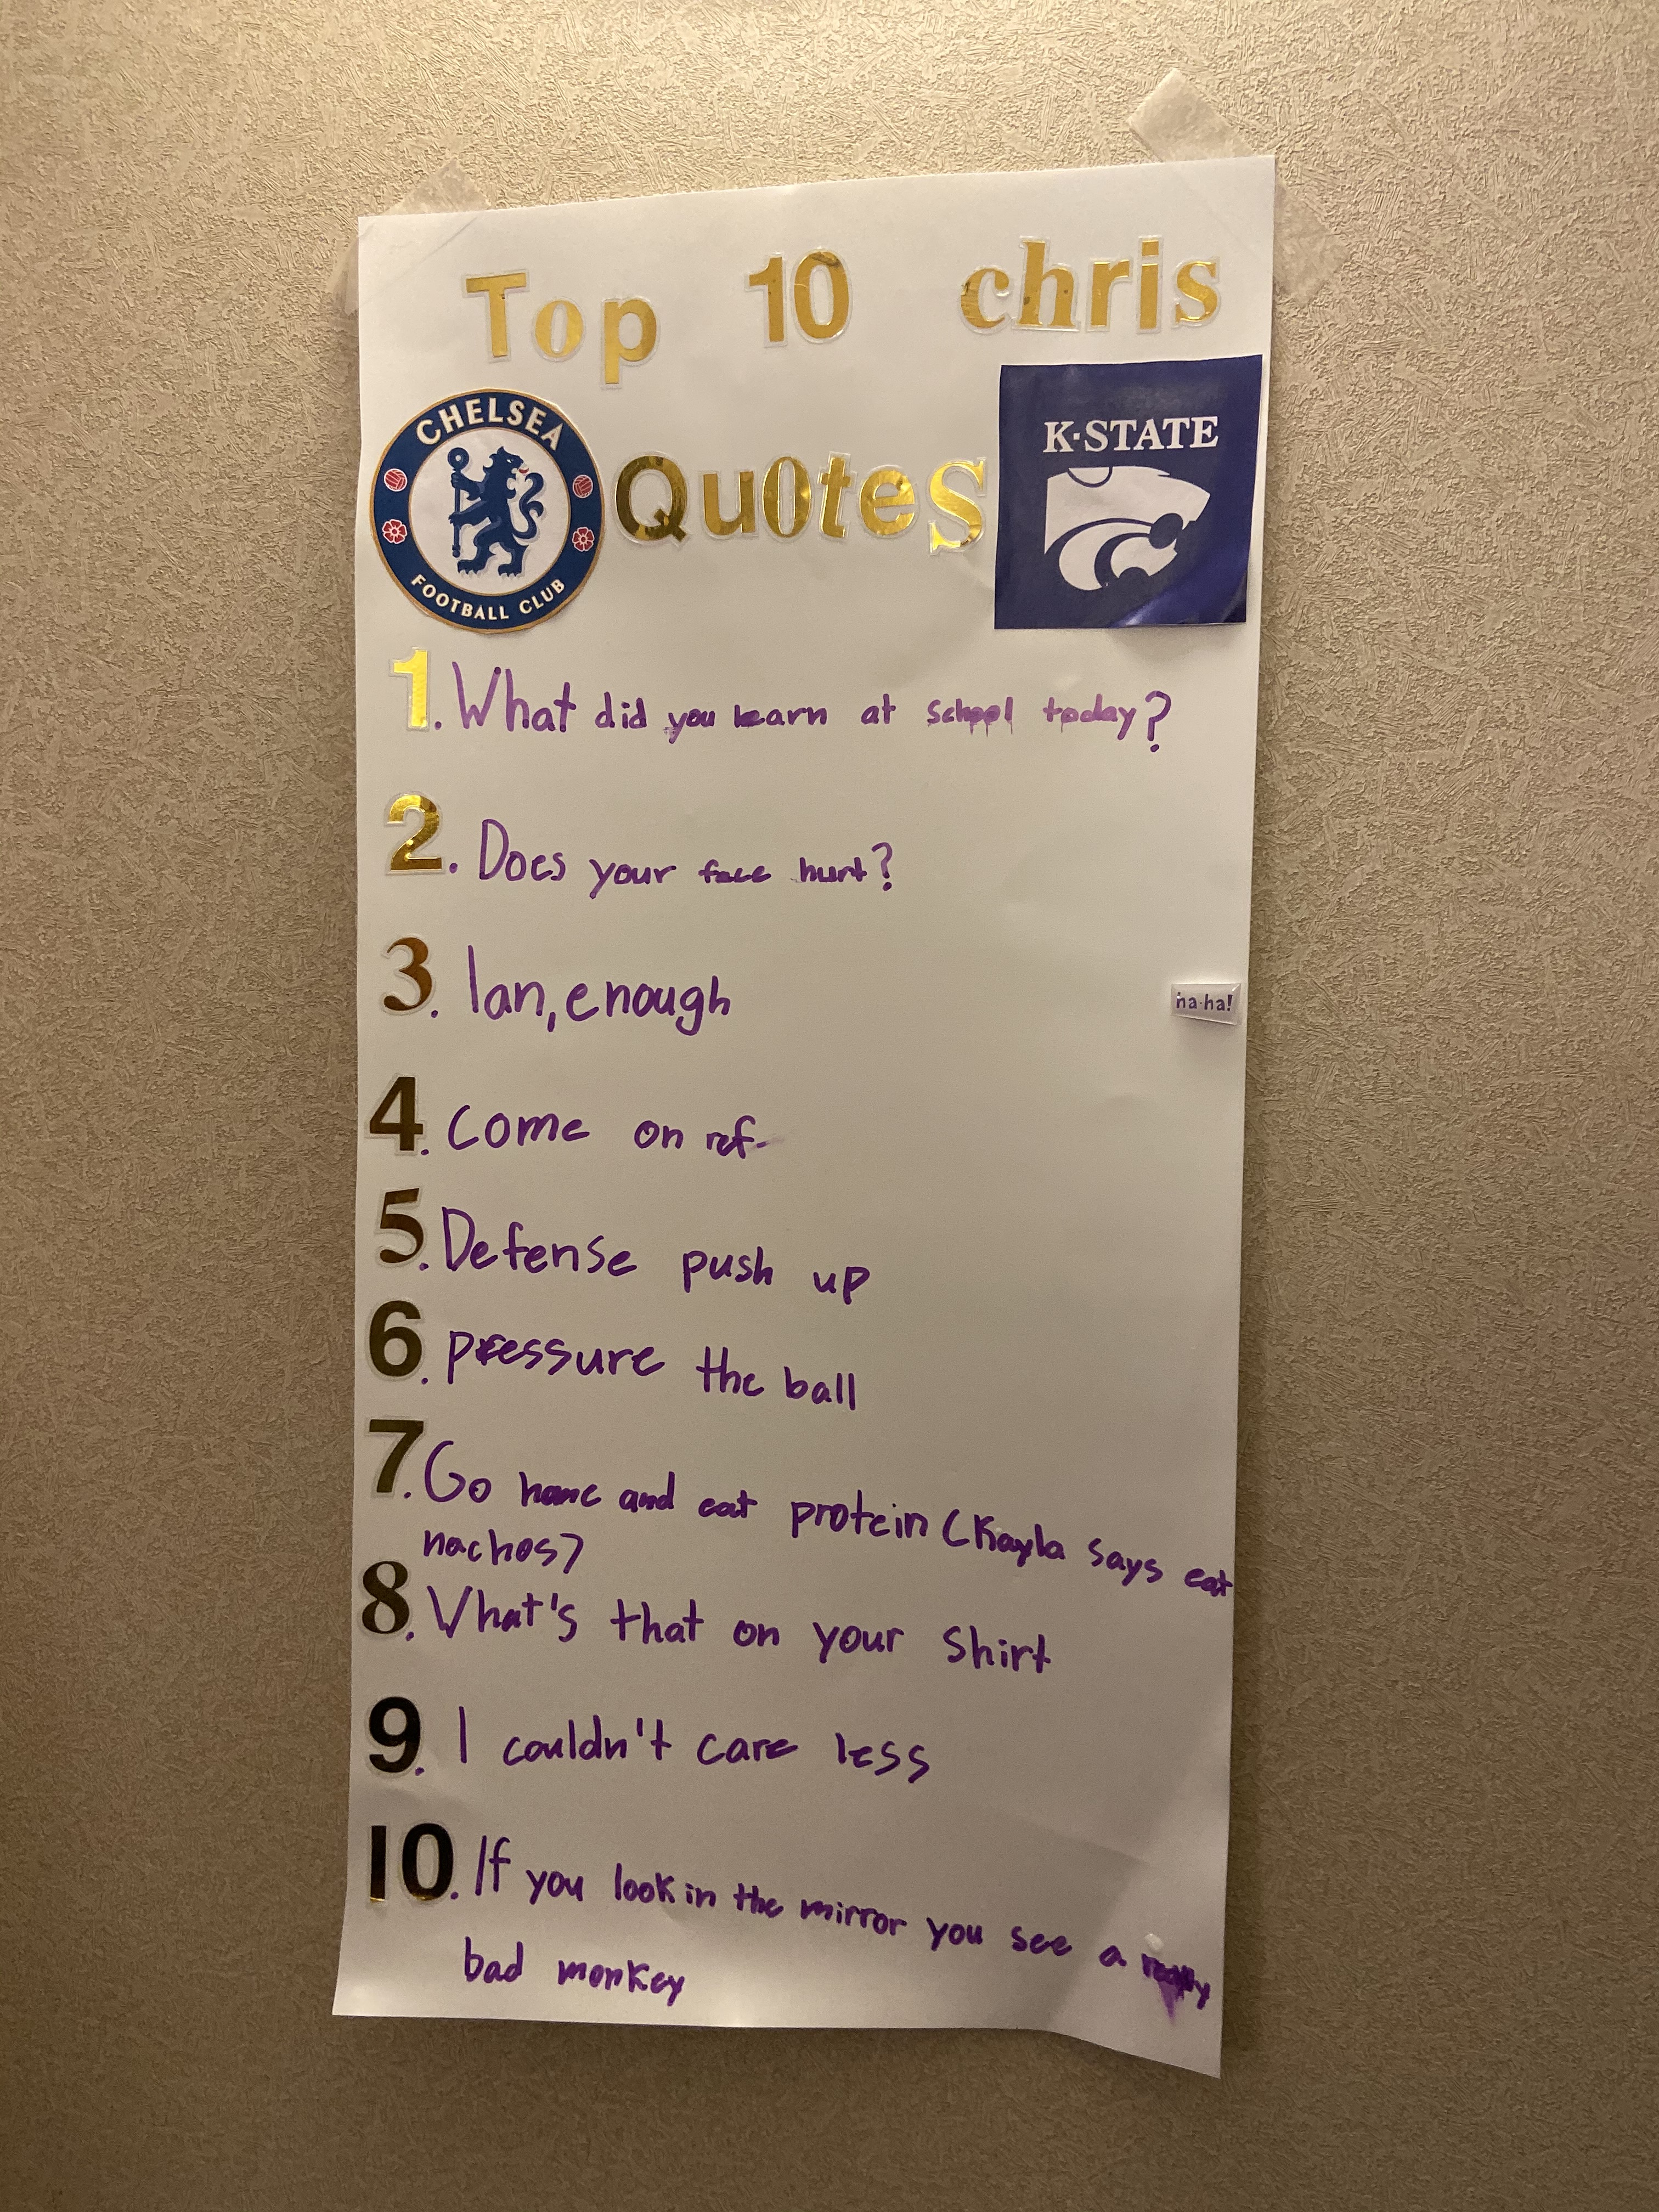 Top 10 chris
CHELSEA
FOOTBALL CLUB
Quotes
K·STATE
1. What did you learn at school today?
2. Does your face hurt?
3. Ian, enough
ha·ha!
4. Come on ref.
5. Defense push up
6. pressure the ball
7. Go home and eat protein (Kayla says eat
nachos)
8. What's that on your Shirt
9. I couldn't care less
10. If you look in the mirror you see a really
bad monkey